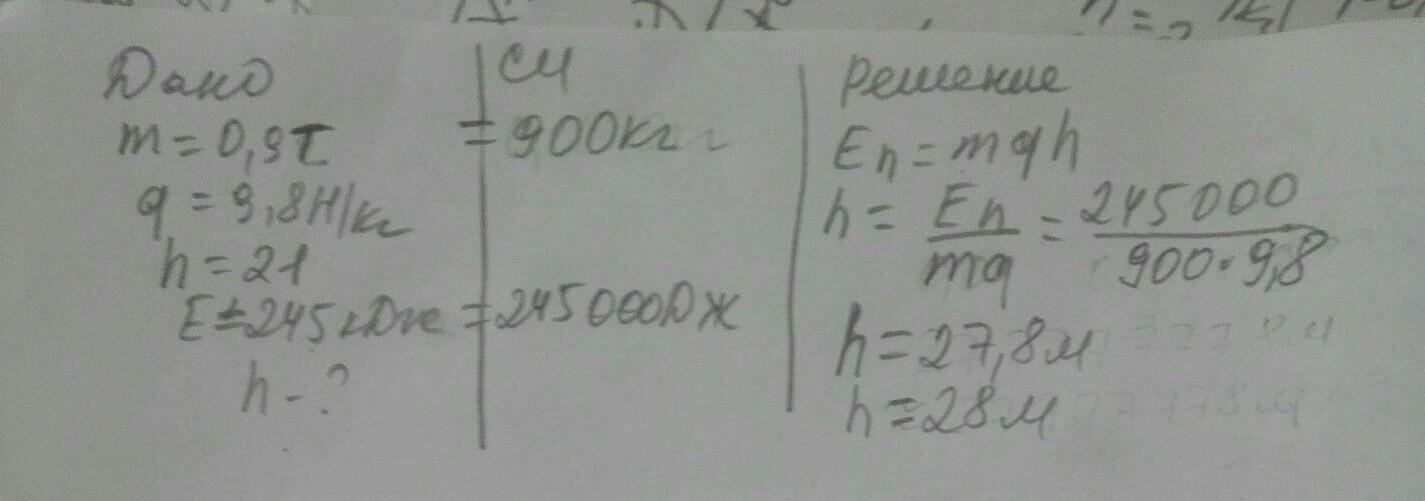 Дано
m = 0,9т
g = 9,8Н/кг
h = 21
E = 245 кДже
h - ?
СИ
= 900кг
= 245000Дж
Решение
Еп = mgh
h = Eп/mg = 245000/900·9,8
h = 27,8м
h = 28м